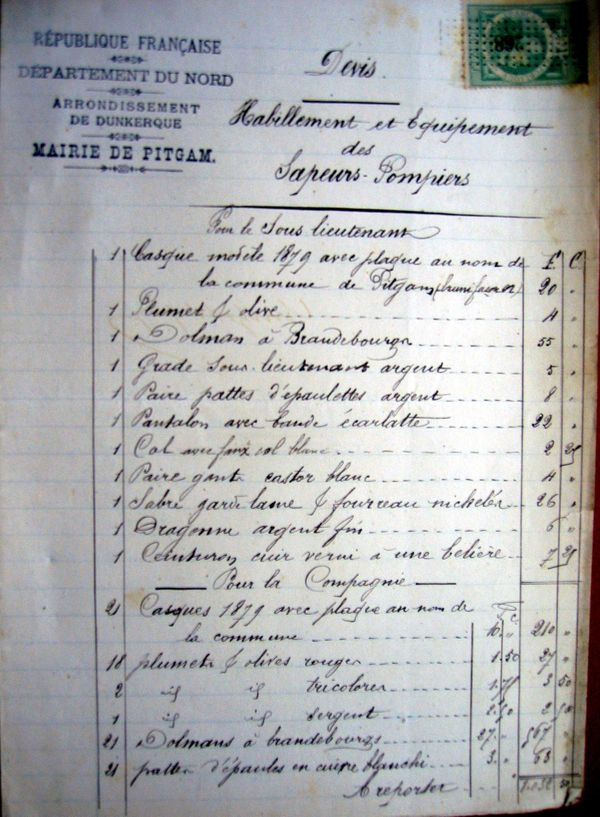 RÉPUBLIQUE FRANÇAISE
DÉPARTEMENT DU NORD
ARRONDISSEMENT
DE DUNKERQUE
MAIRIE DE PITGAM.
Devis
Habillement et Equipement
des
Sapeurs-Pompiers
Pour le Sous lieutenant
F. C.
1 Casque modèle 1879 avec plaque au nom de
la commune de Pitgam 20 "
1 Plumet & olive 4 "
1 Dolman à Brandebourgs 55 "
1 Grade sous-lieutenant argent 5 "
1 Paire pattes d'épaulettes argent 8 "
1 Pantalon avec bande écarlatte 22 "
1 Col avec faux col blanc 2 25
1 Paire gants castor blanc 4 "
1 Sabre garde lame & fourreau nichelés 26 "
1 Dragonne argent fin 6 "
1 Ceinturon cuir verni à une belière 7 25
Pour la Compagnie
21 Casques 1879 avec plaque au nom de
la commune 10. " 210 "
18 plumets & olives rouges 1.50 27 "
2 id id tricolores 1.75 3 50
1 id id sergent 2.50 2 50
21 Dolmans à brandebourgs 27. " 567 "
21 pattes d'épaules en cuivre blanchi 3. " 63 "
A reporter